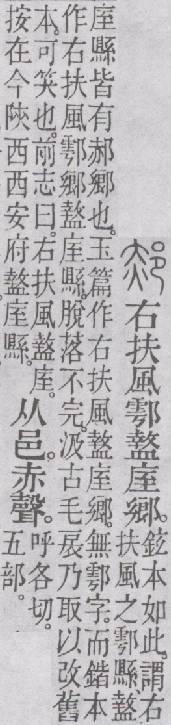 郝
右扶風鄠盩庢鄉。
鉉本如此。謂右
扶風之鄠縣盩
庢縣皆有郝鄉也。玉篇作右扶風盩庢鄉。無鄠字。而鍇本
作右扶風鄠鄉盩庢縣。脫落不完。汲古毛扆乃取以改舊
本。可笑也。前志曰。右扶風盩庢。
按在今陝西西安府盩庢縣。
从邑。赤聲。
呼各切。
五部。